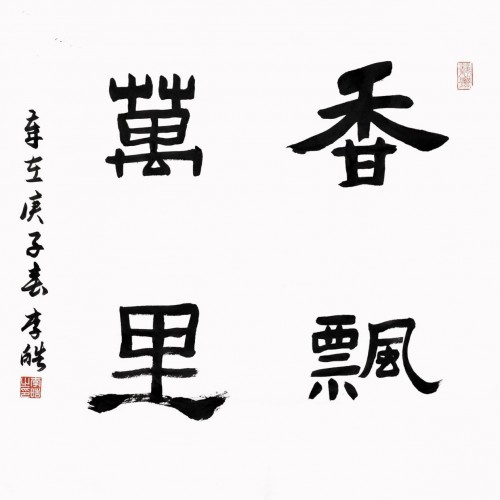 香飄
萬里
歲在庚子春李皓